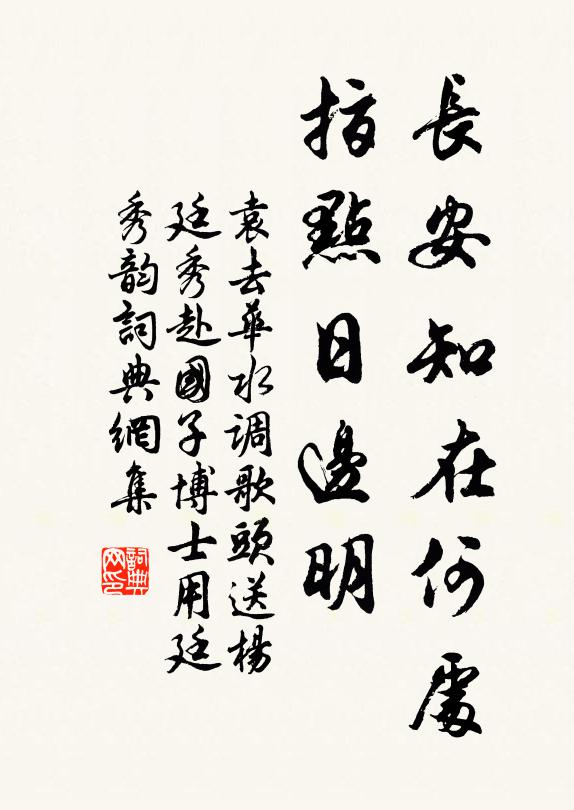 長安知在何處
指點日邊明
袁去華水调歌頭送楊
廷秀赴國子博士用廷
秀韵詞典網集
詞典网印